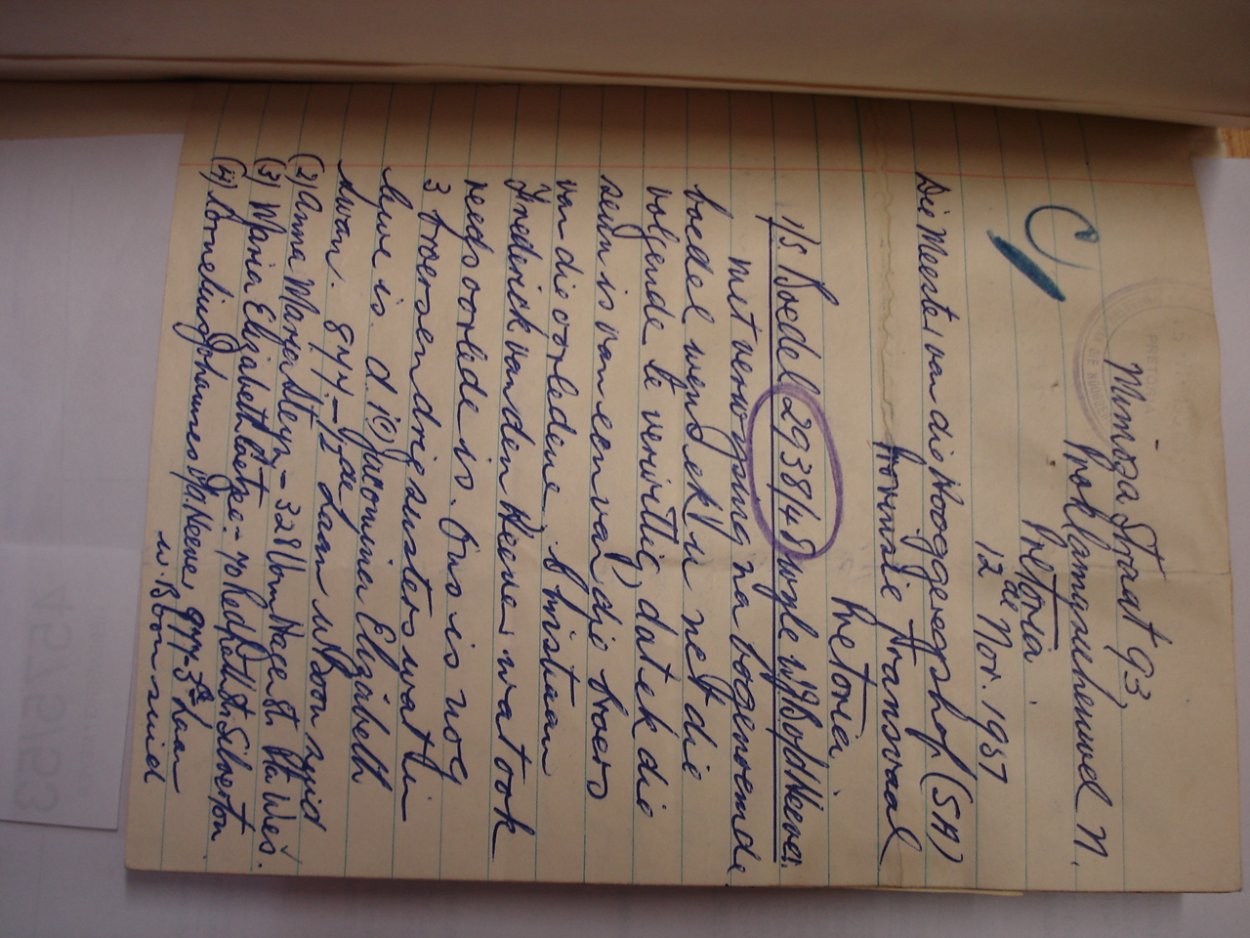 Mimosa Straat 93,
Proklamasieheuwel N.
Pretoria.
12de Nov. 1957
C
PRETORIA
Die Meester van die Hooggeregshof (SA)
Provinsie Transvaal
Pretoria
I/S Boedel 2938/48 wyle
met verwysing na bogenoemde
boedel wens ek u net die
volgende te verwittig, dat ek die
seun is van een van die broers
van die oorledene Christiaan
Frederick van den Heever wat ook
reeds oorlede is. Ons is nog
3 broers en drie susters wat in
lewe is. d.i. (1) Jacomina Elizabeth
Swan. 844 - 12de Laan W Boom Suid
(2) Anna Maria Steyn - 328 Pta Wes.
(3) Maria Elizabeth - 70 St. Silverton
(4) Cornelius Johannes v/d Heever 977 - 3de Laan
W. Boom Suid
4575/53